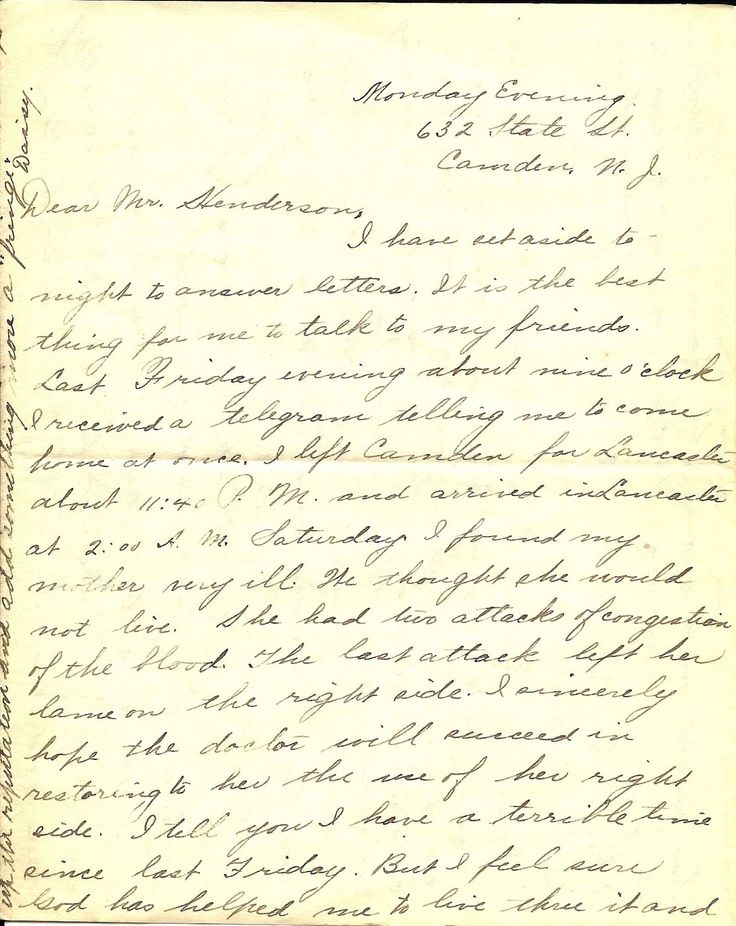 Monday Evening.
632 State St.
Camden, N. J.
Dear Mr. Henderson,
I have set aside to-
night to answer letters. It is the best
thing for me to talk to my friends.
Last Friday evening about nine o'clock
I received a telegram telling me to come
home at once. I left Camden for Lancaster
about 11:40 P. M. and arrived in Lancaster
at 2:00 A. M. Saturday. I found my
mother very ill. We thought she would
not live. She had two attacks of congestion
of the blood. The last attack left her
lame on the right side. I sincerely
hope the doctor will succeed in
restoring to her the use of her right
side. I tell you I have a terrible time
since last Friday. But I feel sure
God has helped me to live three it and
up the reputation and add something more a "fringe."
Daisy.